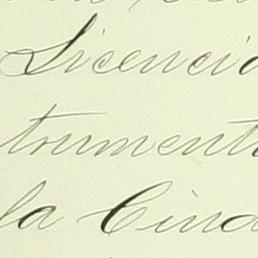 Licencia
trumento
la Ciud